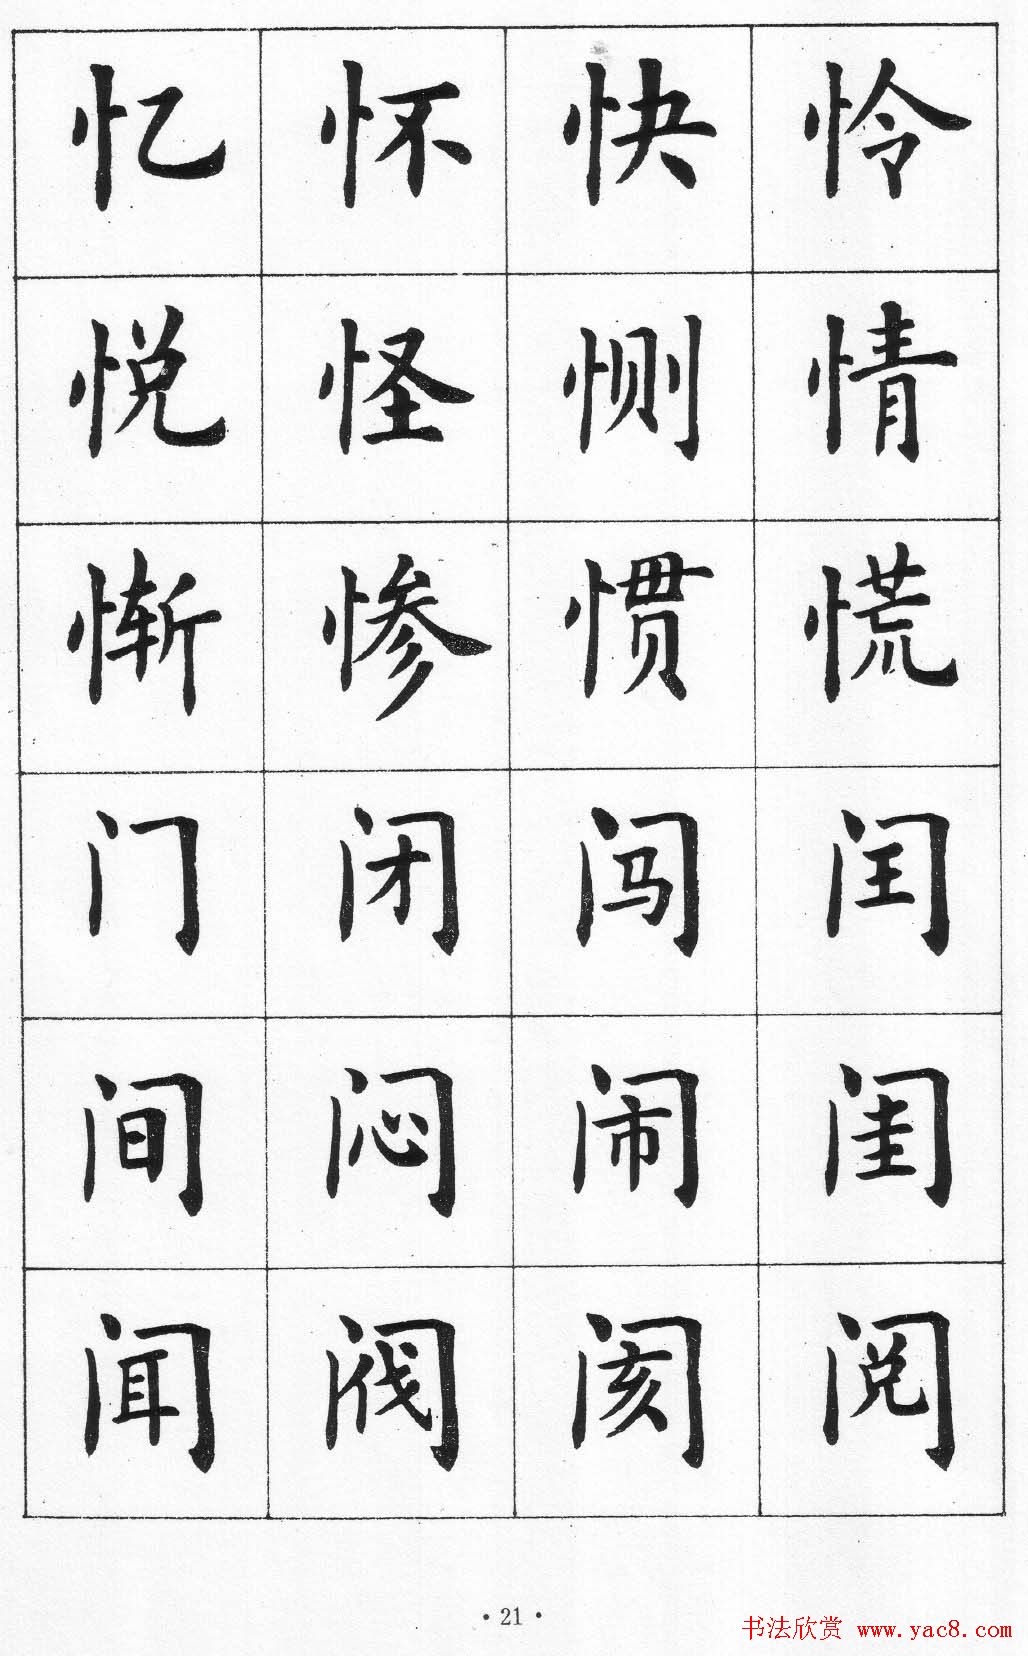 忆怀快怜
悦怪恻情
惭惨惯慌
门闭闯闰
间闷闹闺
闻阀阂阅
·21·
书法欣赏 www.yac8.com